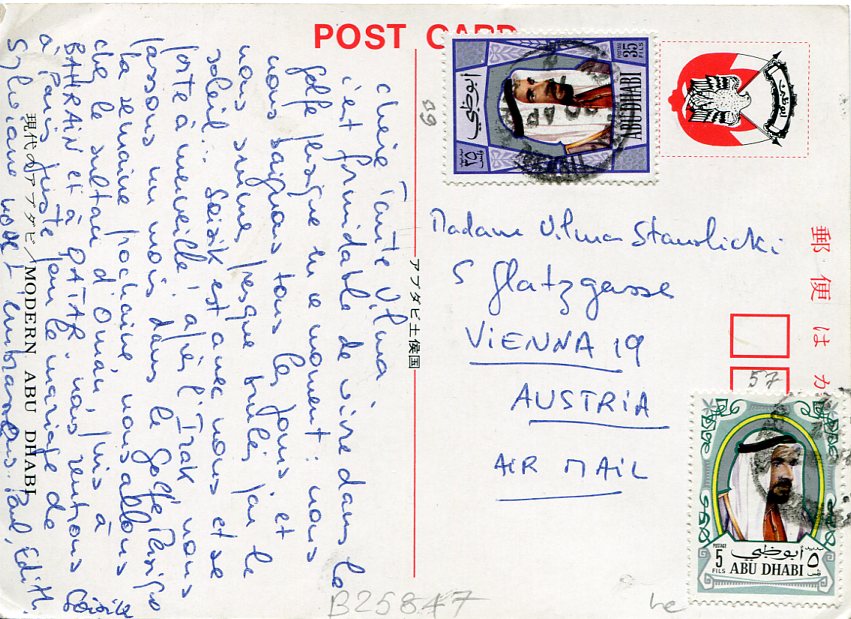 POST CARD
Chère Tante Vilma,
c'est formidable de vivre dans le
golfe Persique en ce moment : nous
nous baignons tous les jours et
nous sommes presque brulés par le
soleil.. Soizik est avec nous et se
porte à merveille! après l'Irak, nous
passons un mois dans le golfe Persique
la semaine prochaine, nous allons
che le sultan d'Oman, puis à
BAHRAIN et à QATAR. nous rentrons
à Paris juste pour le mariage de
Sylviane
embrassons. Paul, Edith
Soizik
現代のアブダビ/MODERN ABU DHABI
アブダビ土侯国
POSTAGE 35 FILS
أبوظبي
٣٥ فلس
ABU DHABI
أبوظبي
郵便はが
Madame Vilma Stawlicki
5 Glatzgasse
VIENNA 19
AUSTRIA
AIR MAIL
57
POSTAGE
5 FILS
أبوظبي
ABU DHABI
٥ فلس
B25847